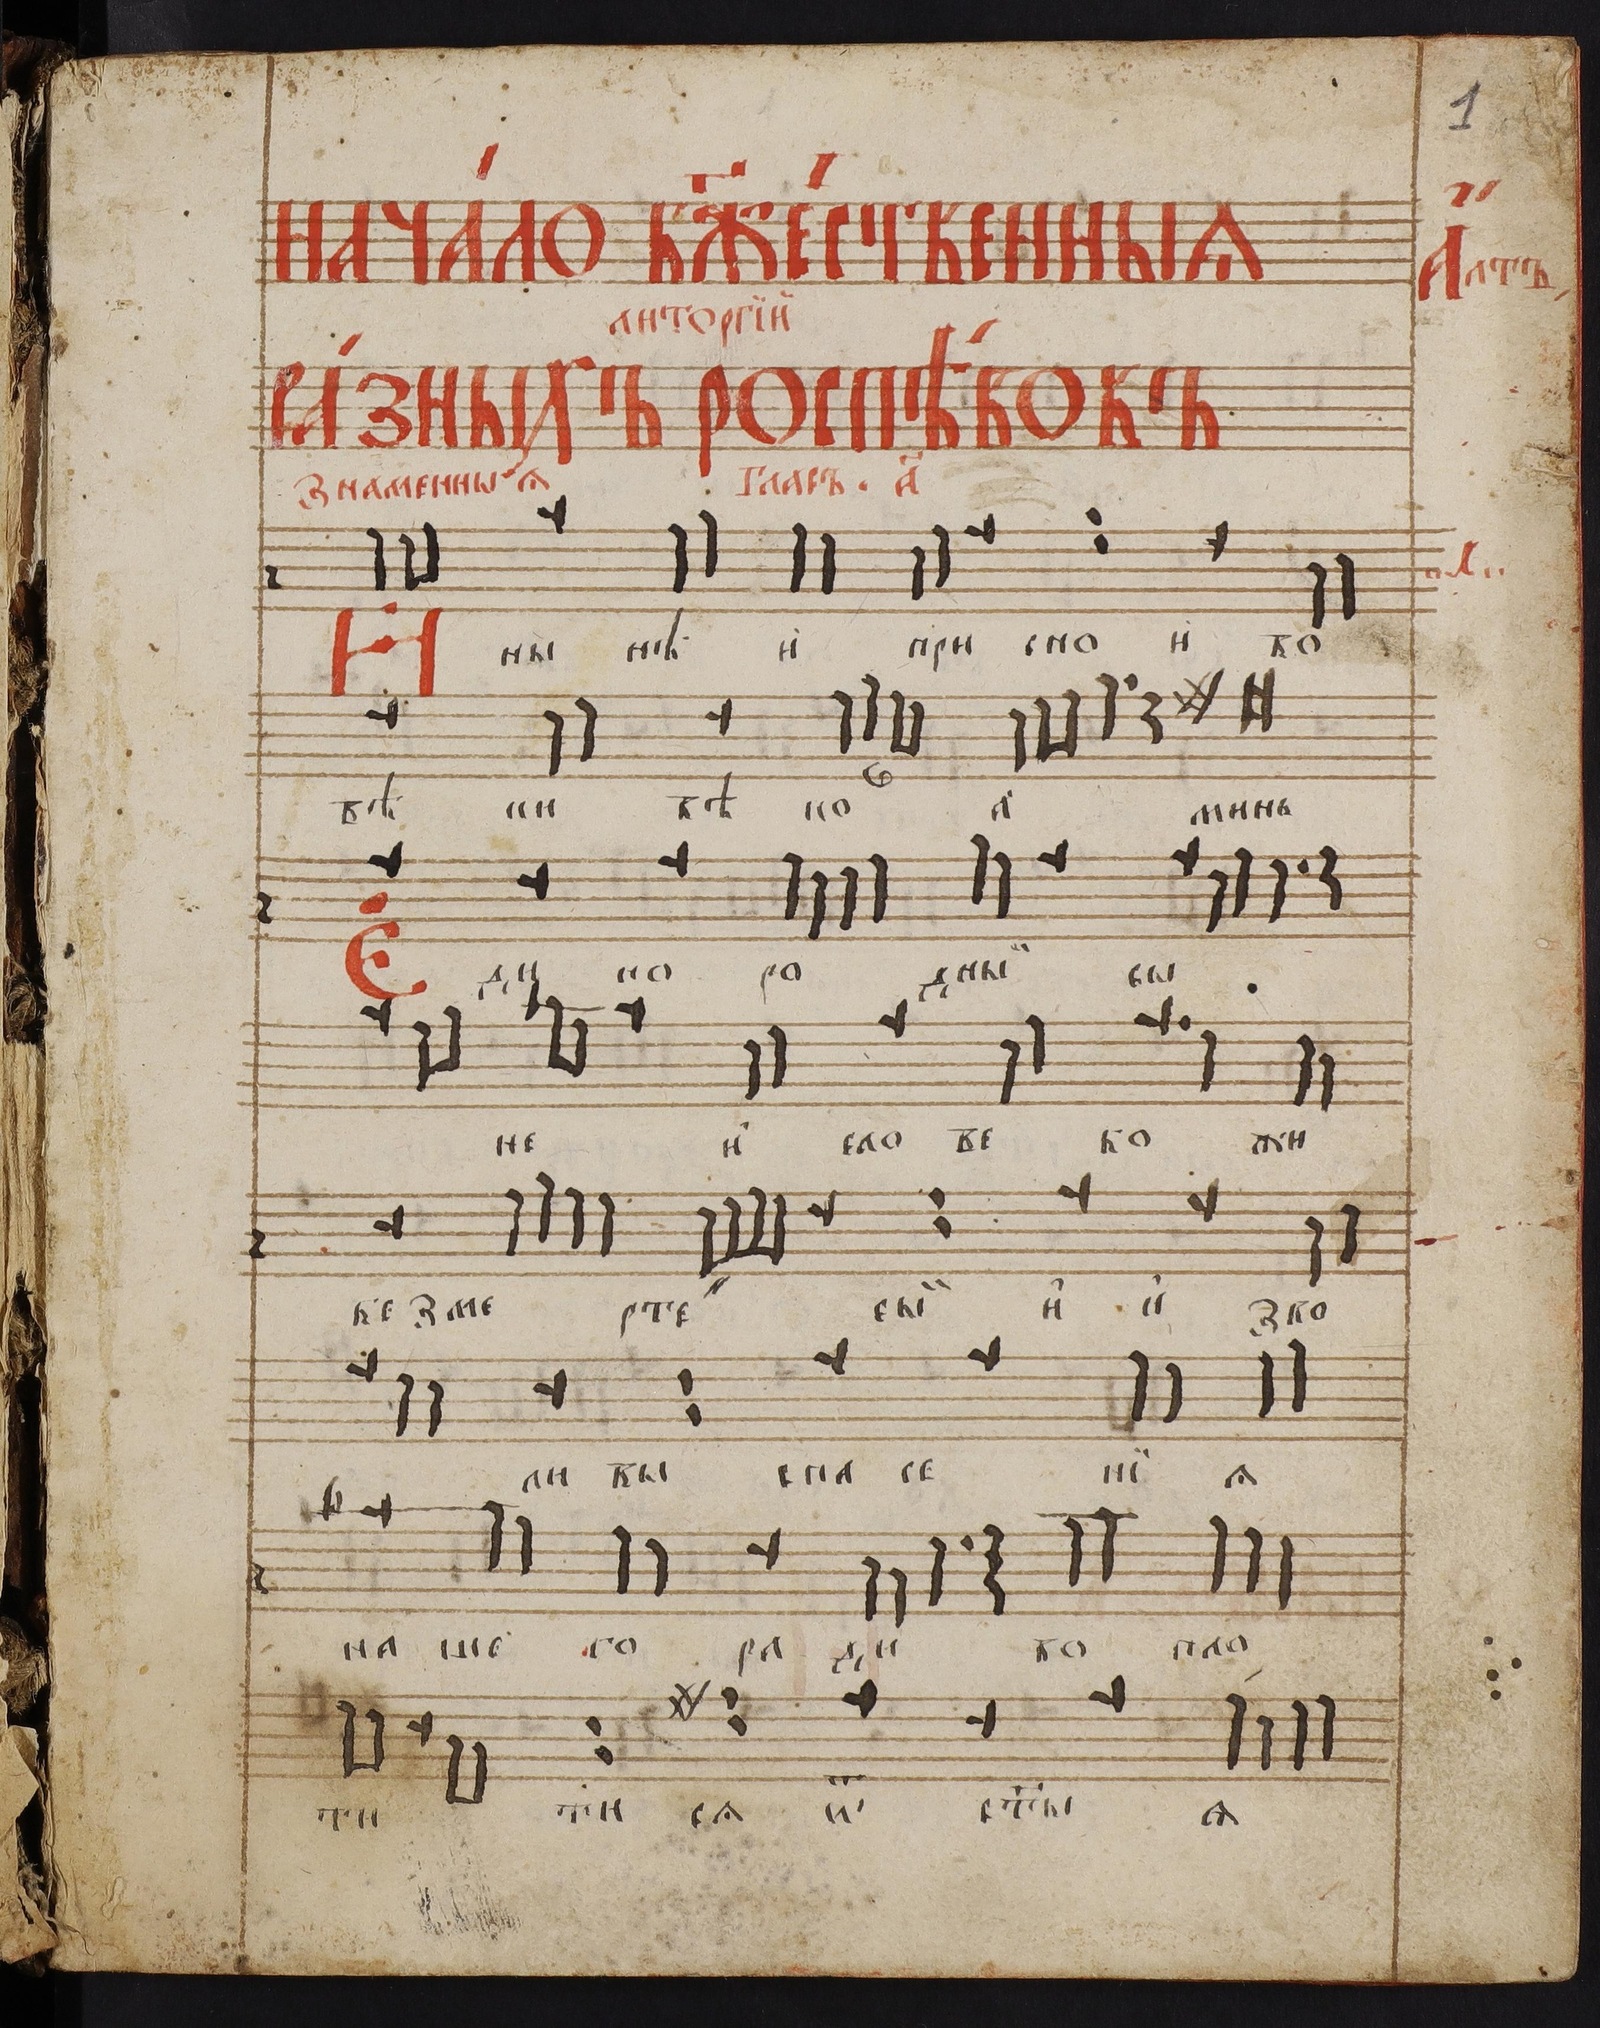 1
НАЧА́ЛО БЖ҃Е́СТВЕННЫѦ
А҃ лтъ
литоргїй
РА́ЗНЫХЪ РОСПѢ́ВОКЪ
знаменныѧ гласъ . а҃
И ны нѣ и при сно и во
вѣ ки вѣ ко а минь
Є ди но ро дный сы
не и сло ве бо жи
бе зме рте сый и и зво
ли вы спа се нї ѧ
на ше го ра ди во пло
ти ти сѧ ѿ ст҃ы ѧ